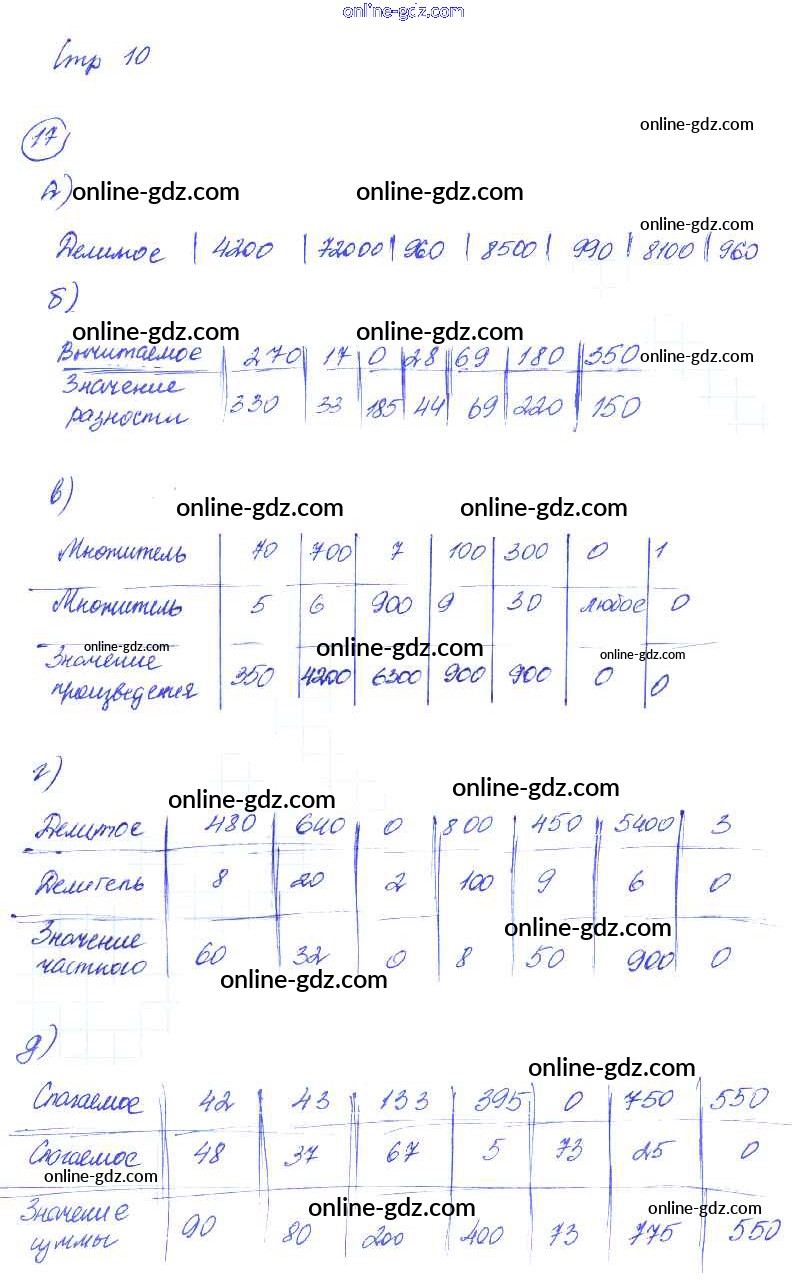 online-gdz.com
Стр 10
17
online-gdz.com
а) online-gdz.com online-gdz.com
online-gdz.com
Делимое | 4200 | 72000 | 960 | 8500 | 990 | 8100 | 960
б)
online-gdz.com online-gdz.com
Вычитаемое 270 17 0 28 69 180 350 online-gdz.com
Значение
разности 330 33 185 44 69 220 150
в)
online-gdz.com online-gdz.com
Множитель 70 700 7 100 300 0 1
Множитель 5 6 900 9 30 любое 0
online-gdz.com online-gdz.com online-gdz.com
Значение
произведения 350 4200 6300 900 900 0 0
г)
online-gdz.com online-gdz.com
Делимое 480 640 0 800 450 5400 3
Делитель 8 20 2 100 9 6 0
online-gdz.com
Значение
частного 60 32 0 8 50 900 0
online-gdz.com
д)
online-gdz.com
Слагаемое 42 43 133 395 0 750 550
Слагаемое 48 37 67 5 73 25 0
online-gdz.com
online-gdz.com online-gdz.com
Значение
суммы 90 80 200 400 73 775 550